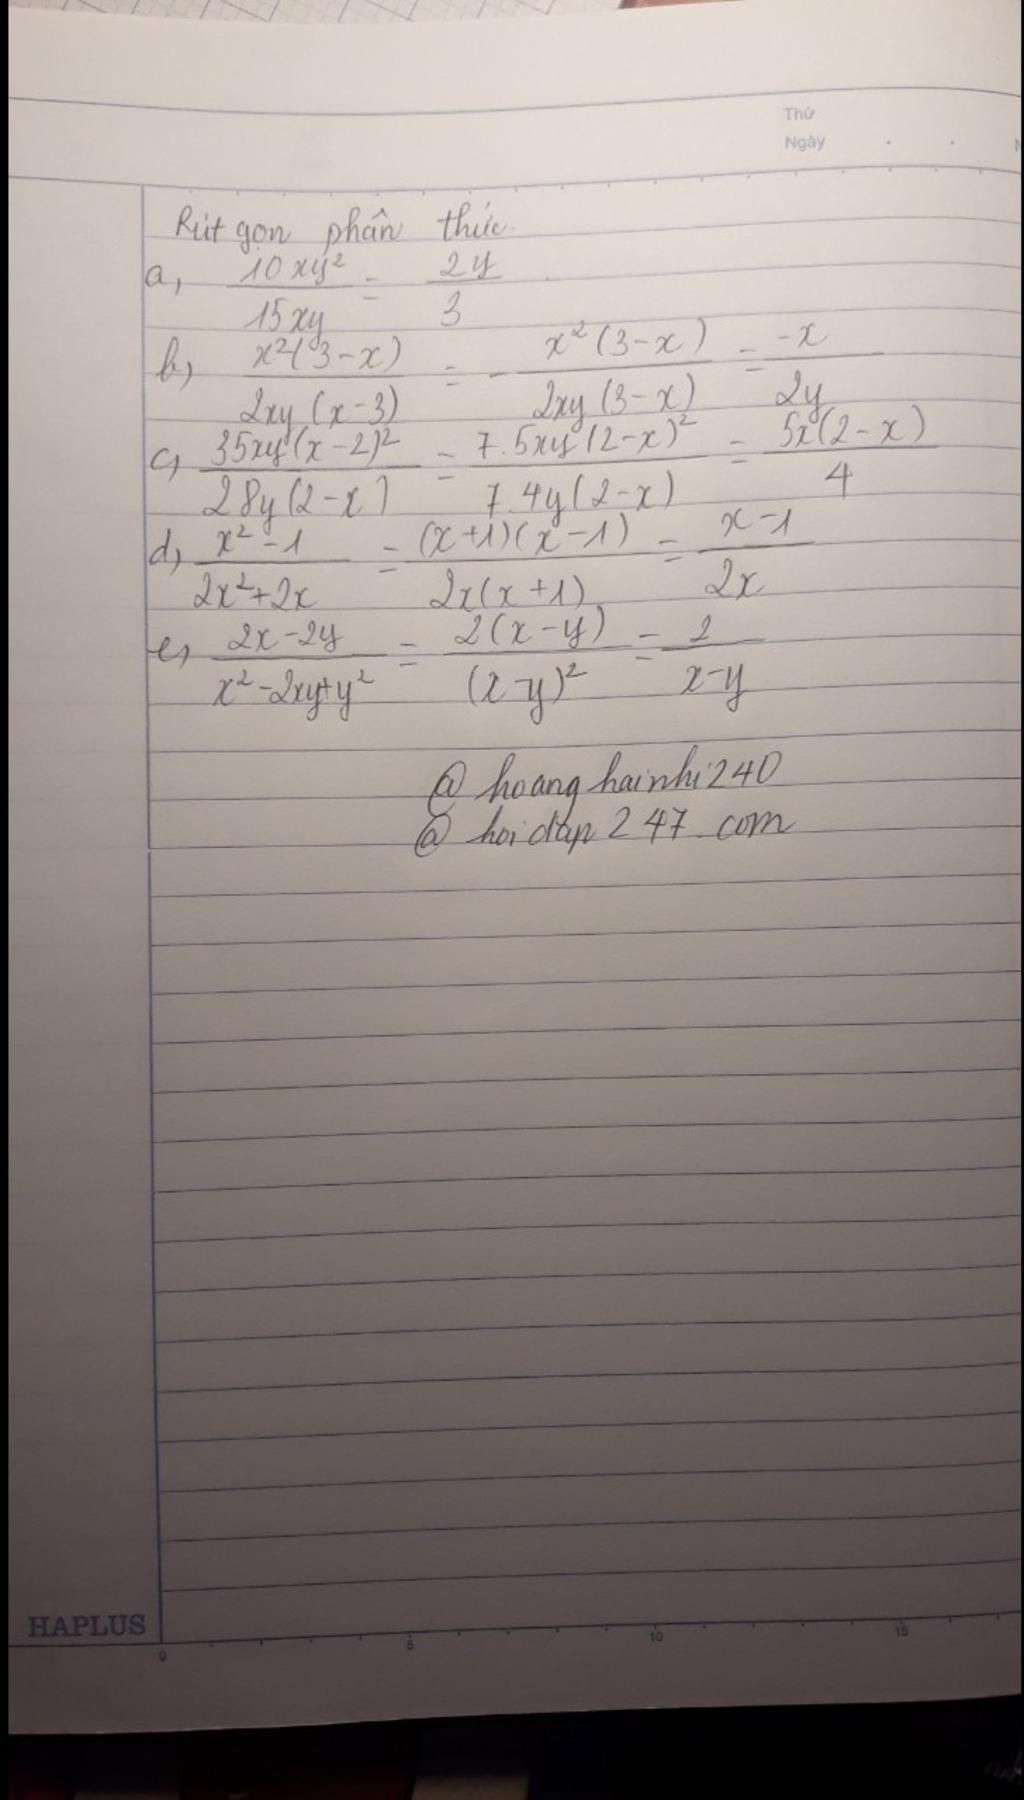 Thứ
Ngày
Rút gọn phân thức.
a, 10xy²/15xy = 2y/3
b, x²(3-x)/2xy(x-3) = - x²(3-x)/2xy(3-x) = -x/2y
c, 35xy(x-2)²/28y(2-x) = 7.5xy(2-x)²/7.4y(2-x) = 5x(2-x)/4
d, x²-1/2x²+2x = (x+1)(x-1)/2x(x+1) = x-1/2x
e, 2x-2y/x²-2xy+y² = 2(x-y)/(x-y)² = 2/x-y
@ hoanghainhi240
@ hoidap247.com
HAPLUS
0 5 10 15